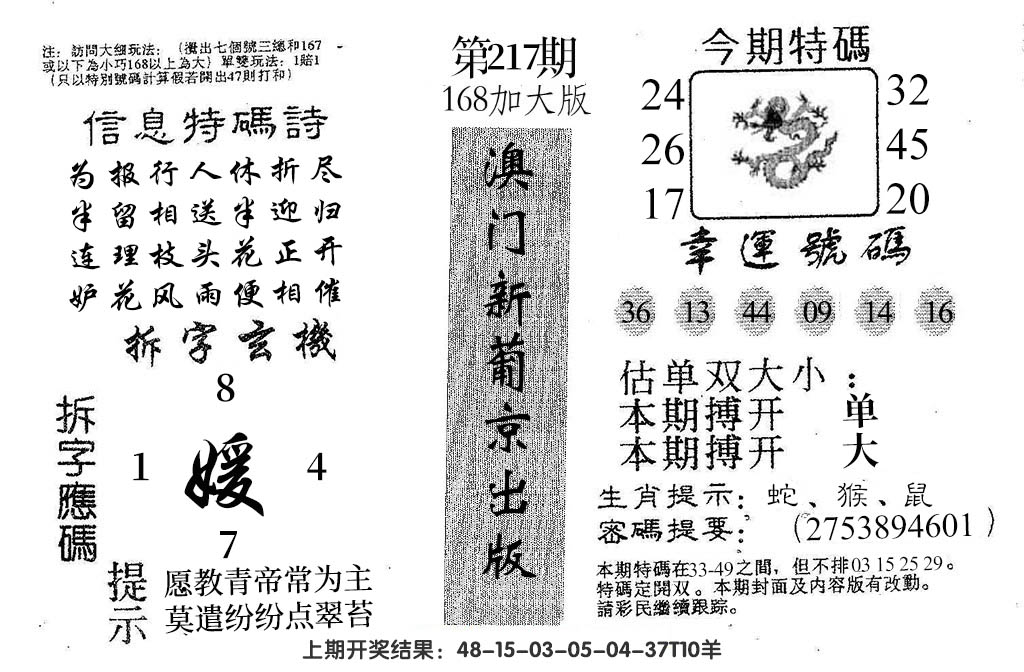 注：訪問大细玩法：（攪出七個號三總和167
或以下為小巧168以上為大）單雙玩法：1賠1
（只以特別號碼計算假若開出47則打和）
信息特碼詩
为报行人休折尽
半留相送半迎归
连理枝头花正开
妒花风雨便相催
拆字玄機
8
拆字應碼
1 媛 4
7
提示
愿教青帝常为主
莫遣纷纷点翠苔
第217期
168加大版
澳门新葡京出版
今期特碼
24 32
26 45
17 20
幸運號碼
36 13 44 09 14 16
估单双大小：
本期搏开 单
本期搏开 大
生肖提示：蛇、猴、鼠
密碼提要：（2753894601）
本期特碼在33-49之間，但不排03 15 25 29。
特碼定開双。本期封面及内容版有改動。
請彩民繼續跟踪。
上期开奖结果：48-15-03-05-04-37T10羊